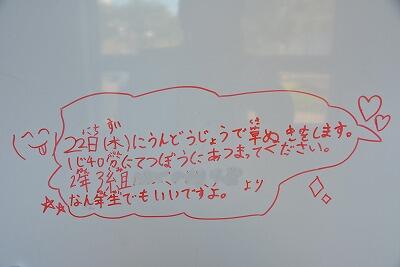 22日(水)にうんどうじょうで草ぬきをします。
1じ40分にてつぼうにあつまってください。
2年3組 より
なん年生でもいいですよ。